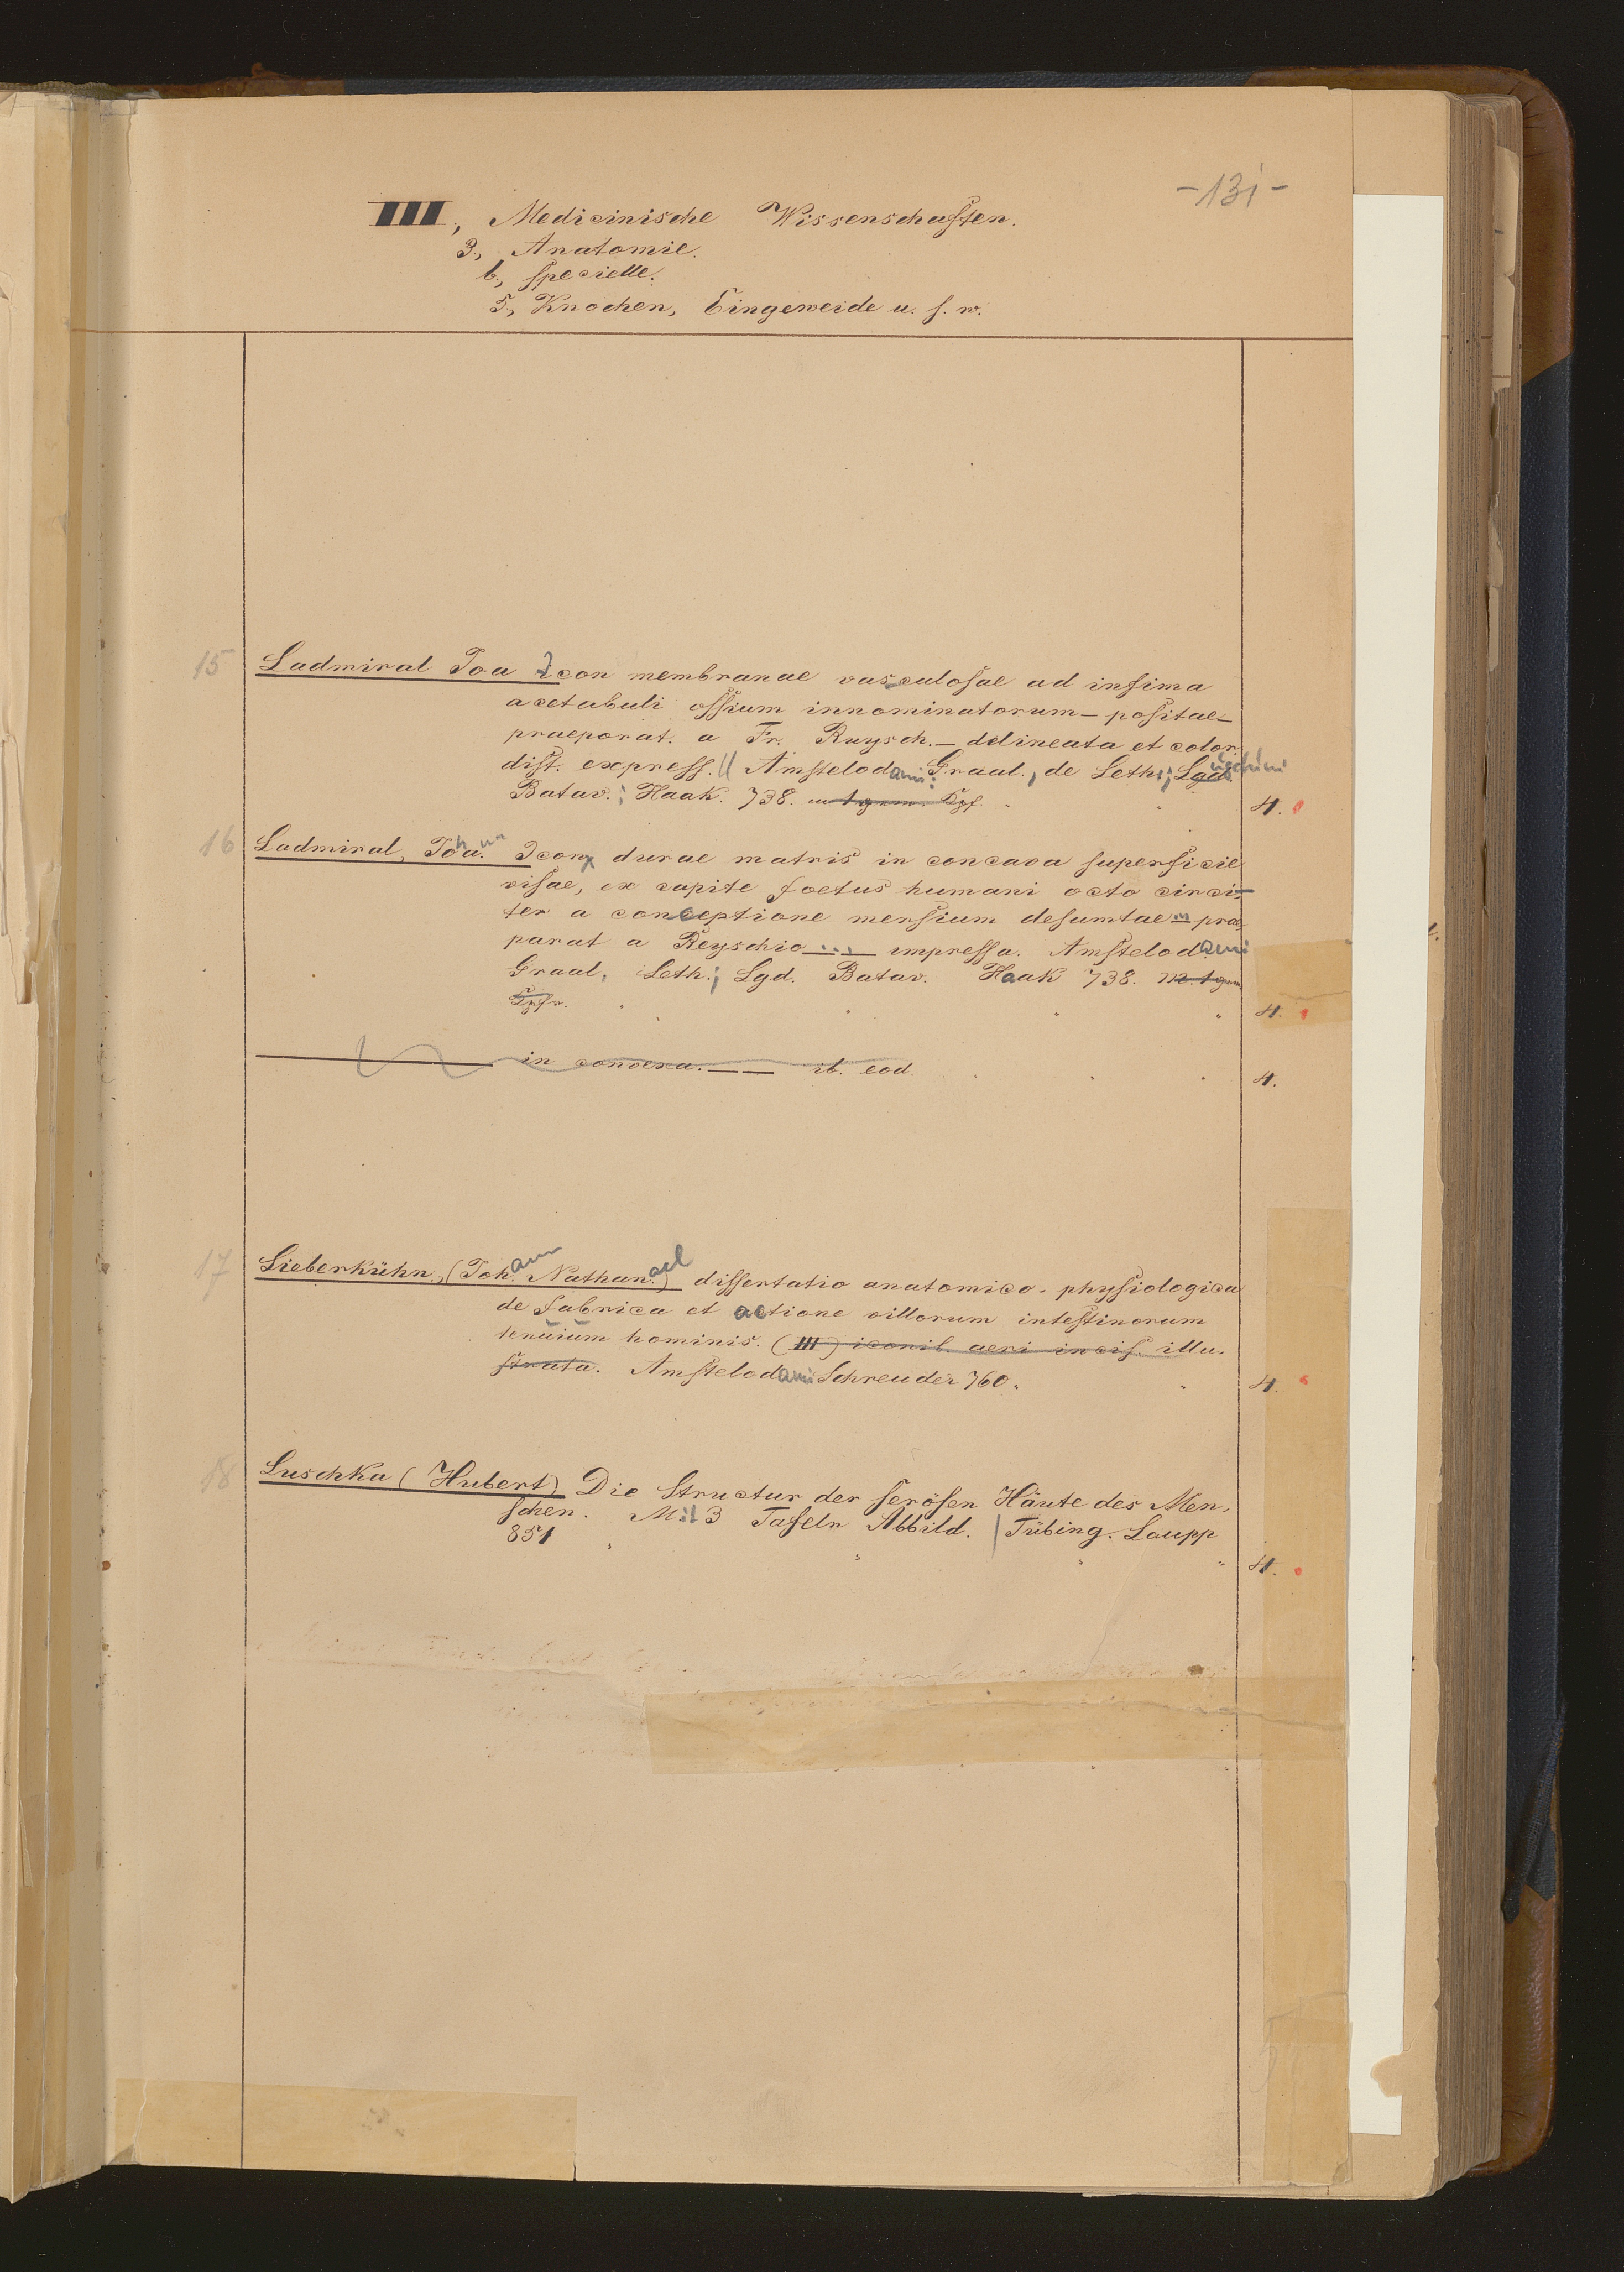 -131-
III, Medicinische Wissenschaften.
3, Anatomie.
b, specielle.
5, Knochen, Eingeweide u. s. w.
15 Ladmiral Joa Icon membranae vasculosae ad infima
acetabuli ossium innominatorum – positae –
praeporat. a Fr. Ruysch. – delineata et color.
dist. express. || Amstelodami: Graal., de Leth; Lgd. ugduni
Batav.; Haak. 738. m 1 gem. Kpf. 4.
16 Ladmiral, Johann. Icon durae matris in concava superficie
visae, ex capite foetus humani octo circi-
ter a conceptione mensium desumtae ... prae-
parat a Reyschio ... impressa. Amstelodami
Graal, Leth.; Lgd. Batav. Haak 738. m. 1 gem
Kpfr. 4.
——— in convexa. — — ib. eod. 4.
17 Lieberkühn, (Johann Nathanael) dissertatio anatomico-physiologica
de fabrica et actione villorum intestinorum
tenuium hominis. (III) iconib. aeri incis. illu-
strata. Amstelodami Schreuder 760. 4.
18 Luschka (Hubert) Die Structur der serösen Häute des Men-
schen. Mit 3 Tafeln Abbild. | Tübing. Laupp
851 4.